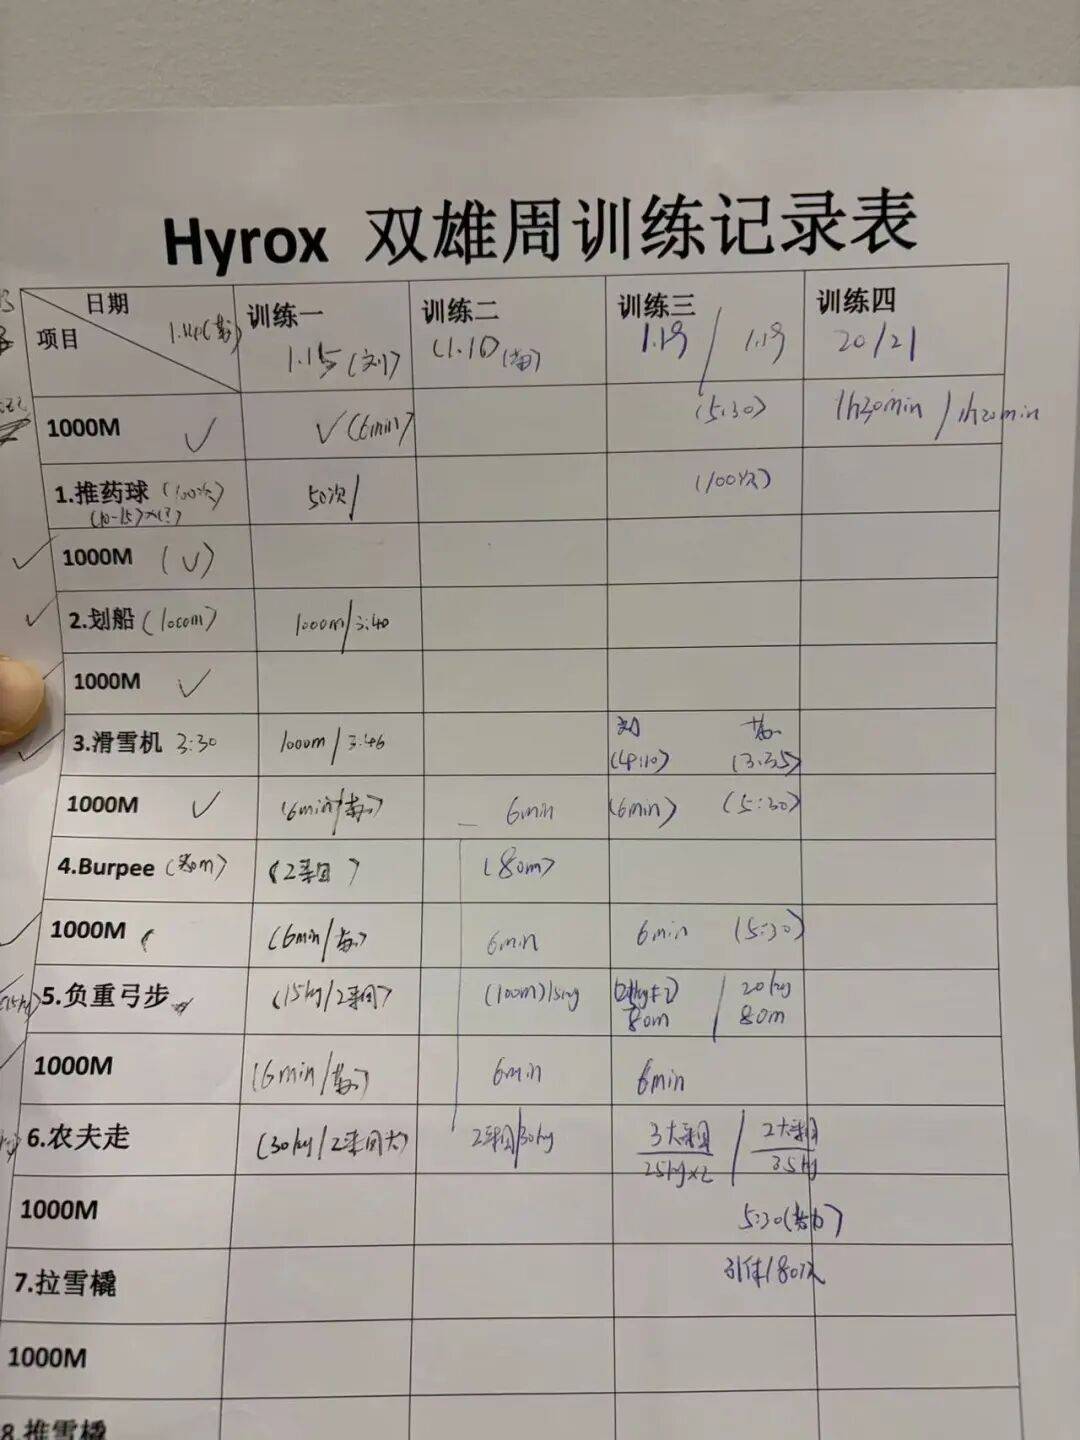 Hyrox 双雄周训练记录表
日期
项目
训练一
1.15(刘)
训练二
训练三
1.19 / 1.19
训练四
20/21
1000M ✓
✓(6min)
(5:30)
1h30min / 1h20min
1.推药球 (100次)
(10-15)×(?)
50次/
(100次)
1000M (✓)
2.划船 (1000m)
1000m/3:40
1000M ✓
3.滑雪机 3:30
1000m/3:46
刘
(4:10)
(3:35)
1000M ✓
(6min/
6min
(6min)
(5:30)
4.Burpee (80m)
(80m)
1000M
(6min/
6min
6min
(5:30)
5.负重弓步
(15kg/2
(100m)15kg
80m
/ 20kg
80m
1000M
(6min/
6min
6min
6.农夫走
(30kg/2
30kg
25kg×2
35kg
1000M
5:30
7.拉雪橇
引体/80次
1000M
8.推雪橇